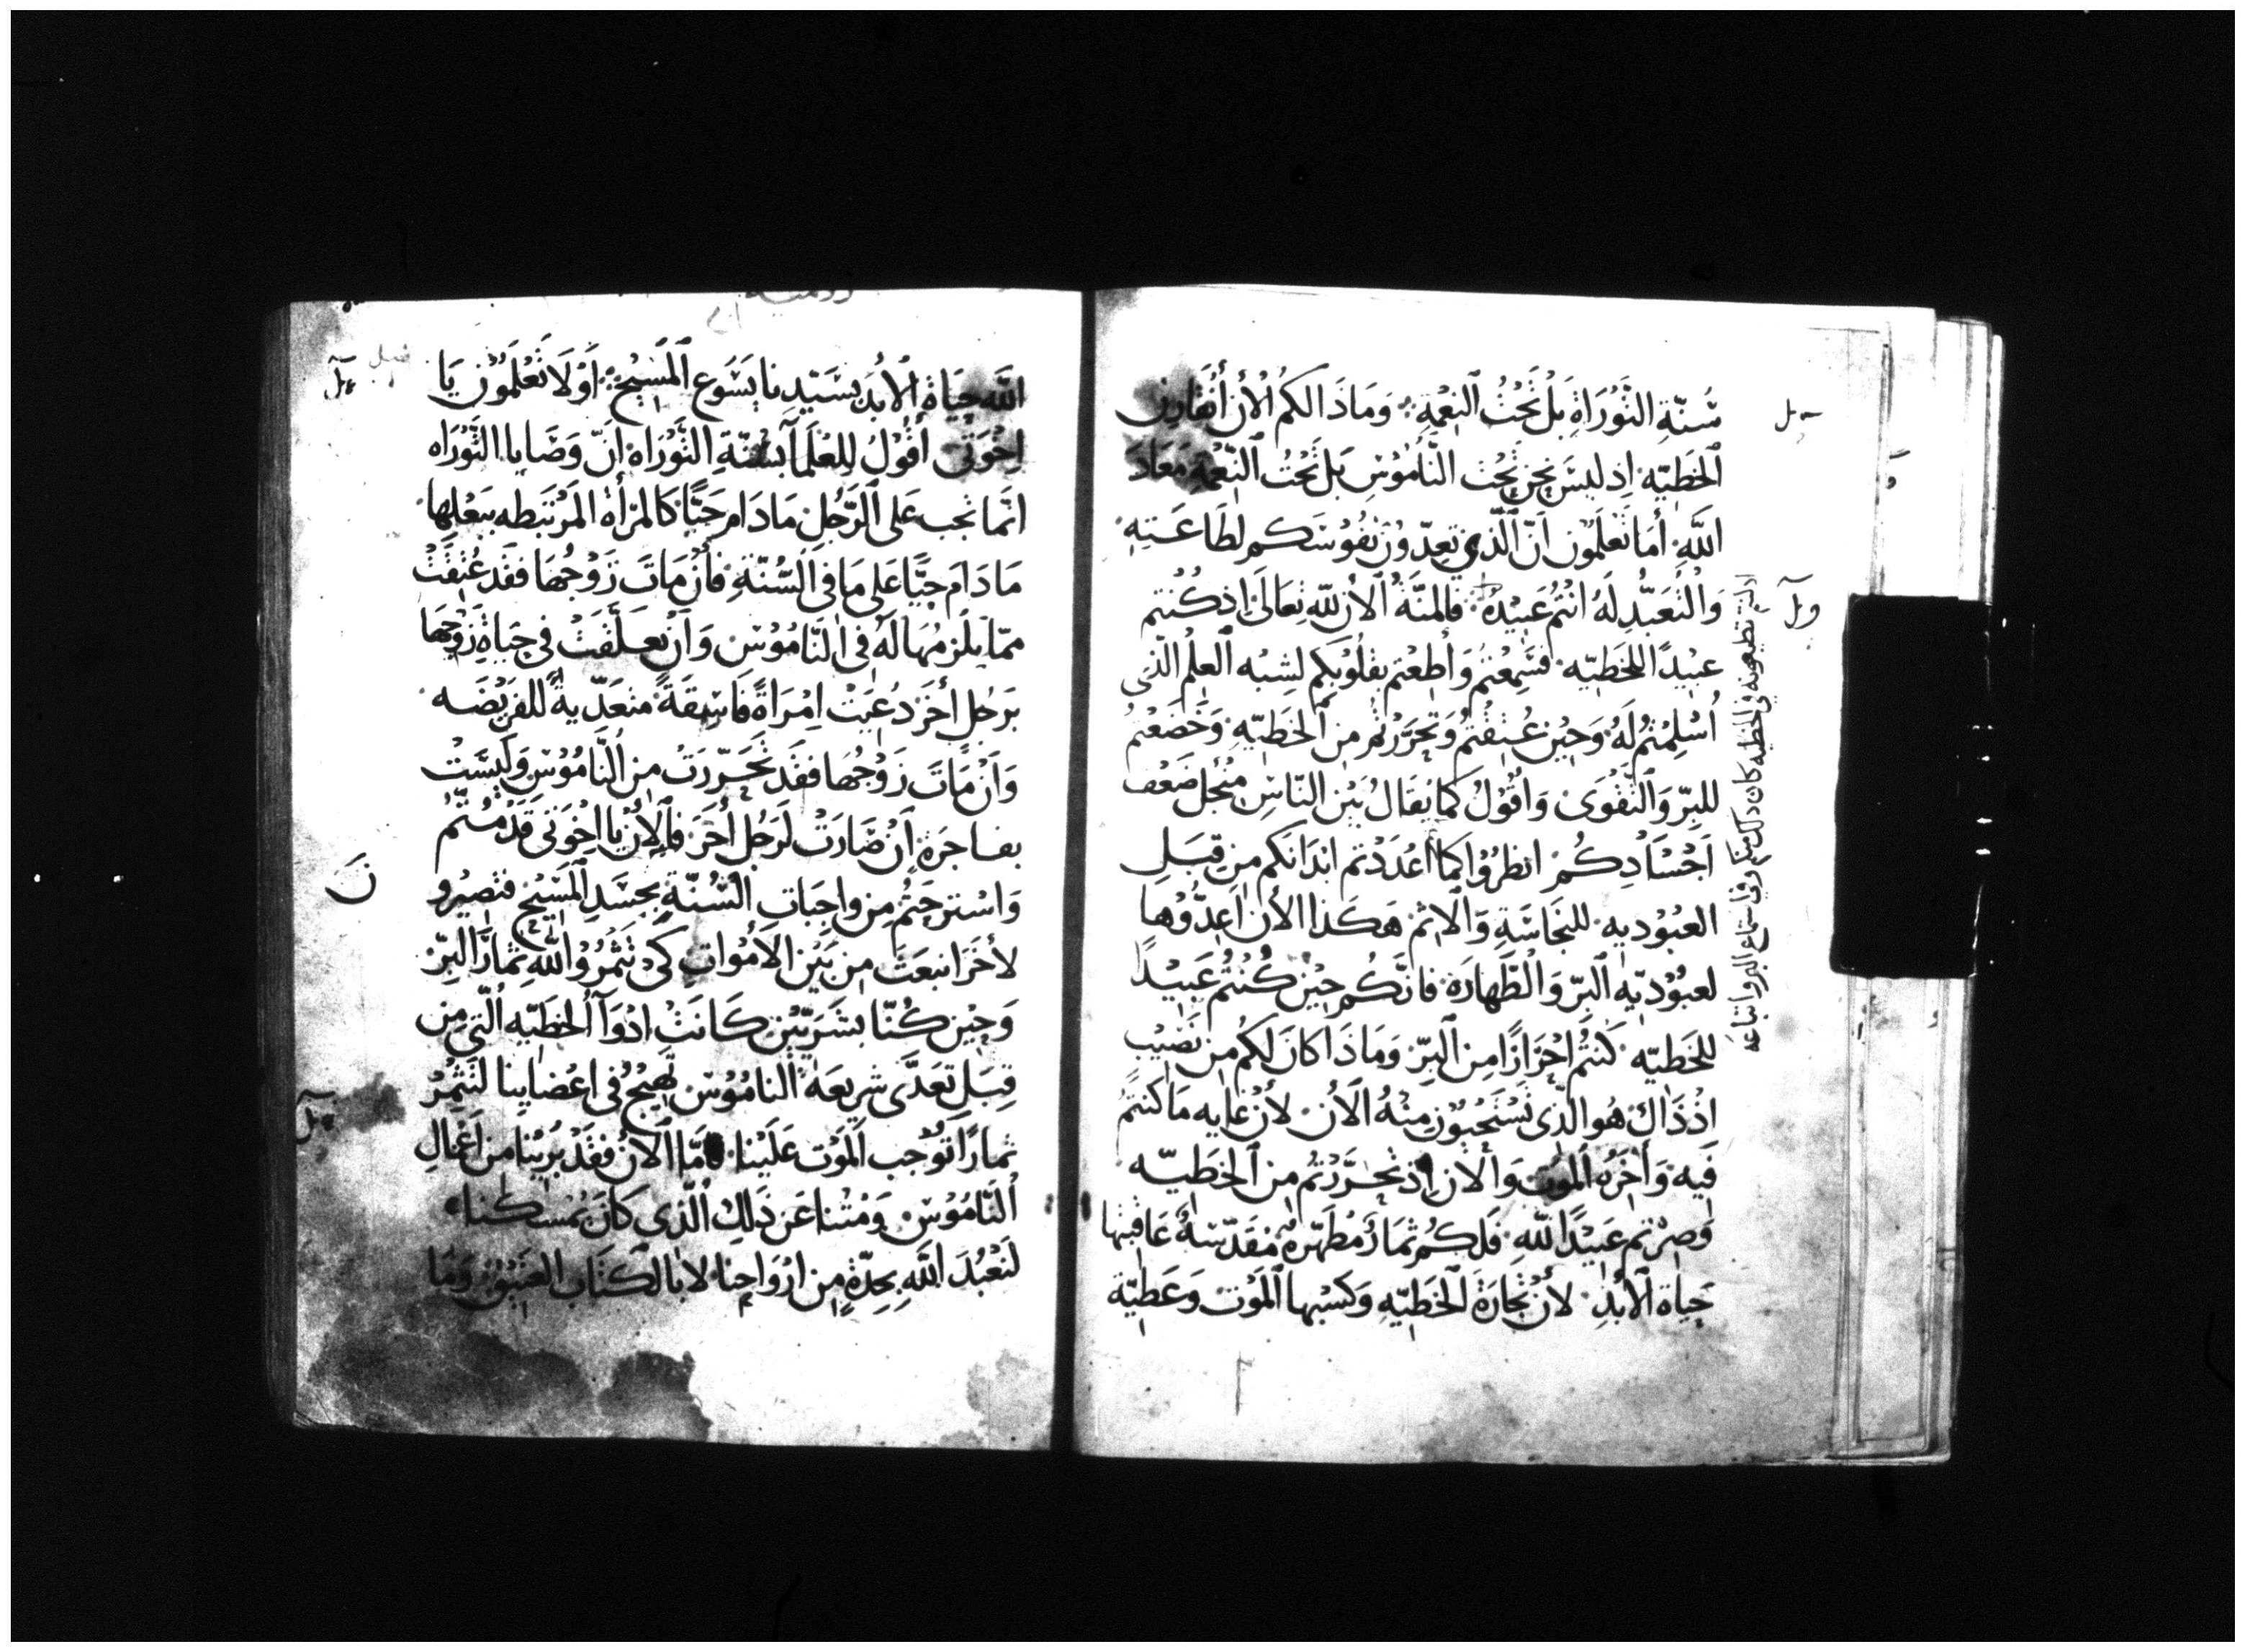 سُنّةِ التَّوْرَاةِ بَلْ تَحْتُ النِعْمةِ وَمَاذَا لكمُ الْأن أنُقَارِن
الخَطِيّه اِذ ليسَ نحن تَحْت النَّامُوْسِ بَل تَحْتُ النِّعْمةِ مَعَاذَ
اللَّهِ أمَا تَعْلَمُون اَنّ الَّذِي تعِدّوْنَ نفُوْسَكم لطَاعَتِهِ
وَالتعَبُّدِ لَهُ انتُم عَبيْدهُ فالمنَّةُ الأن للّه تعَالىَ اذ كنتم
عبيْدًا للخَطيّه فسَمِعْتمْ وَأطعْتم بقلُوْبكم لشِبْه العِلْم الذّى
اُسْلِمْتُم لَهُ وَحِيْن عُتِقْتمُ وَتحَرَّرْتم من الخطيّهِ وَخَضَعْتمُ
للبرّ وَالتَقْوَى وَاقُوْلُ كما يقَالُ بَيْن النّاسِ منْجل ضَعْف
اَجْسَادِكُمْ انظرُوْا كما اعْدَدْتم ابْدَانكم مِن قبَلِ
العبُوْديه للنجَاسَةِ وَالاثم هَكذا الأن اَعِدُّوْها
لعبُوْديّه البرّ وَالطَّهارَة فانَّكُم حِيْن كُنْتُم عَبيْدًا
للخَطيّه كنتُم احْرَارًا مِن البِرِّ وَمَاذَا كانَ لكم مِن نَصْيْبِ
اذْذَاك هُو الذّى تسْتَحْيُوْن مِنْهُ الأن لأن غايه مَا كنتمُ
فيهِ وَأخرُه المَوْت وَالأن اِذ تحَرَّرْتُم مِن الخَطيّه
وَصِرْتم عَبيْدًا للّهِ فَلكُم ثمَارٌ مُطَهّرةٌ مُقدّسَةٌ عَاقبتها
حيَاة الأبدِ لأن تجَارَةَ الخَطيّهِ وَكسْبها المَوْت وَعَطيّة
اذ انتم تطيعونه في الخطيه كان ذلك منكم وفي استماع البر واتباعه
اللَّه حيَاة الأبدِ بسَيّدِنا يَسُوع المَسِيْح أوْلَا تَعْلَمُوْن يَا
اِخْوَتى أقُوْلُ لِلعُلَمَآ بسُنّةِ التَّوْرَاة اِنَّ وَصَايا التَّوْرَاه
انَّما تجب عَلى الرَّجُلِ مَا دَام حَيًّا كالمرْأةِ المرْتبَطه ببَعْلِها
مَا دَامَ حيًّا عَلى مَا فى السُّنّةِ فأن مَاتَ زَوْجُهَا فقَد عُتِقَتْ
ممّا يلزمُهَا لَهُ فى النَّامُوْسِ وَاَن تعَلَّقَتْ فى حيَاةِ زَوْجِهَا
برَجُل أخَر دُعيَتْ امْرَأةً فاسِقَةً متعَدّيةً للفريْضَه
وَاَن مَاتَ زَوْجُهَا فقَد تَحَرّرَتْ من النَّامُوْسِ وَليْسَتْ
بفاجرَة اَنْ صَارَتْ لرَجُلٍ أخَر فالأن يا اخْوَتى قدْ مُتّمُ
وَاسْترحْتُم مِن واجبَاتِ السُّنّةِ بجسَدِ المَسِيْح فتصِيْرو
لأخَر انبعَثَ مِن بَيْن الأمْوَاتِ كَىْ تُثْمِرُوْا للّهِ ثمَارَ البِرِّ
وَحِيْن كُنّا بشَرِيّيْن كانَتْ ادْوَآ الخَطيّه التّى مِن
قِبَل تعَدَّى شريعَة النامُوْس تهِيْجُ فى اعْضَايِنا لنثمِرَ
ثمارًا توُجب المَوْت عَلَيْنا فأمَّا الأن فقَدْ بُرِيْنا من اعْمَالِ
النَّامُوْسِ وَمُتْنا عَن ذَلِك الذّى كانَ يُمْسِكُنا
لنَعْبُدَ اللَّهِ بجدّةٍ مِن ارْوَاحِنا لا بالكتَاب العَتيْق وَمَا